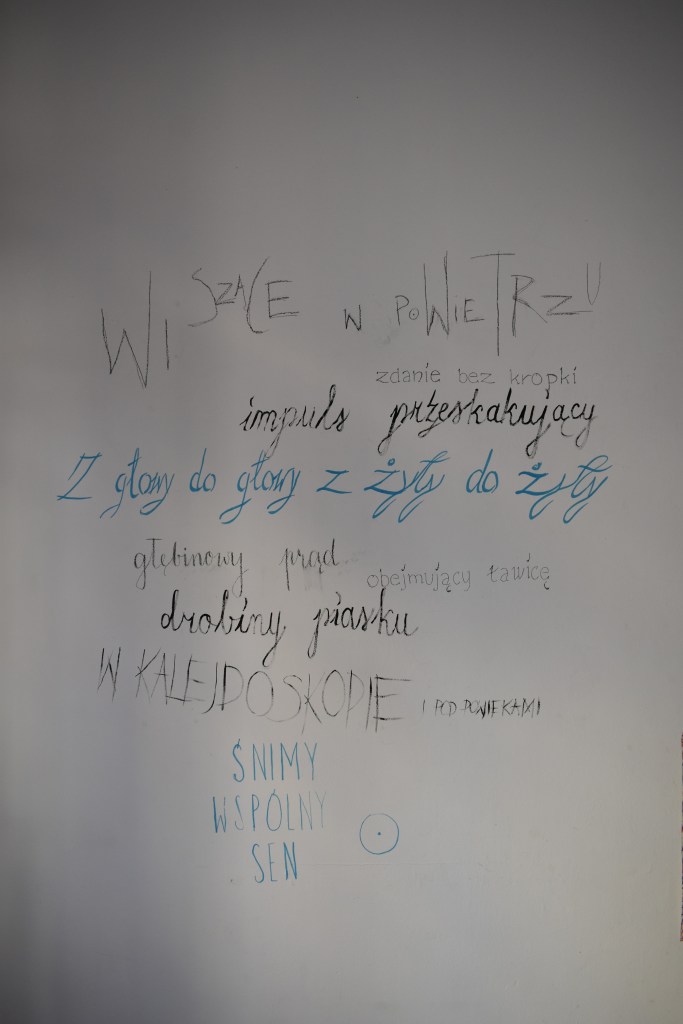 WISZĄCE W POWIETRZU
zdanie bez kropki
impuls przeskakujący
Z głowy do głowy z żyły do żyły
głębinowy prąd
obejmujący ławicę
drobiny piasku
W KALEJDOSKOPIE I POD POWIEKAMI
ŚNIMY
WSPÓLNY
SEN